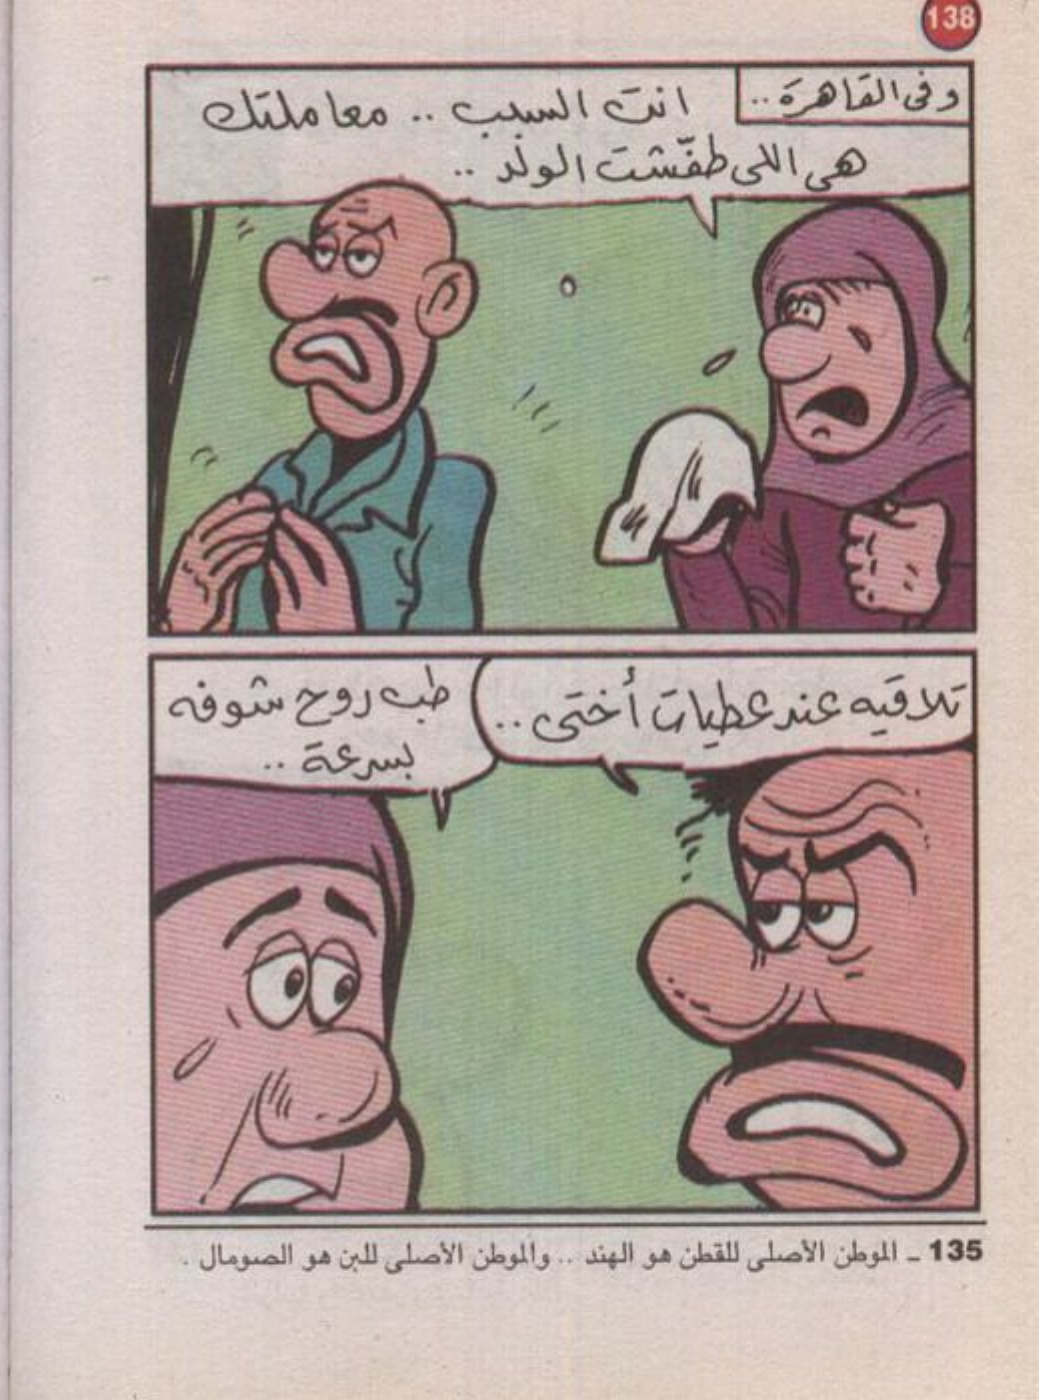 138
وفى القاهرة..
انت السبب .. معاملتك
هى اللى طفّشت الولد ..
تلاقيه عند عطيات أختى ..
طب روح شوفه
بسرعة ..
135 ـ الموطن الأصلى للقطن هو الهند .. والموطن الأصلى للبن هو الصومال .